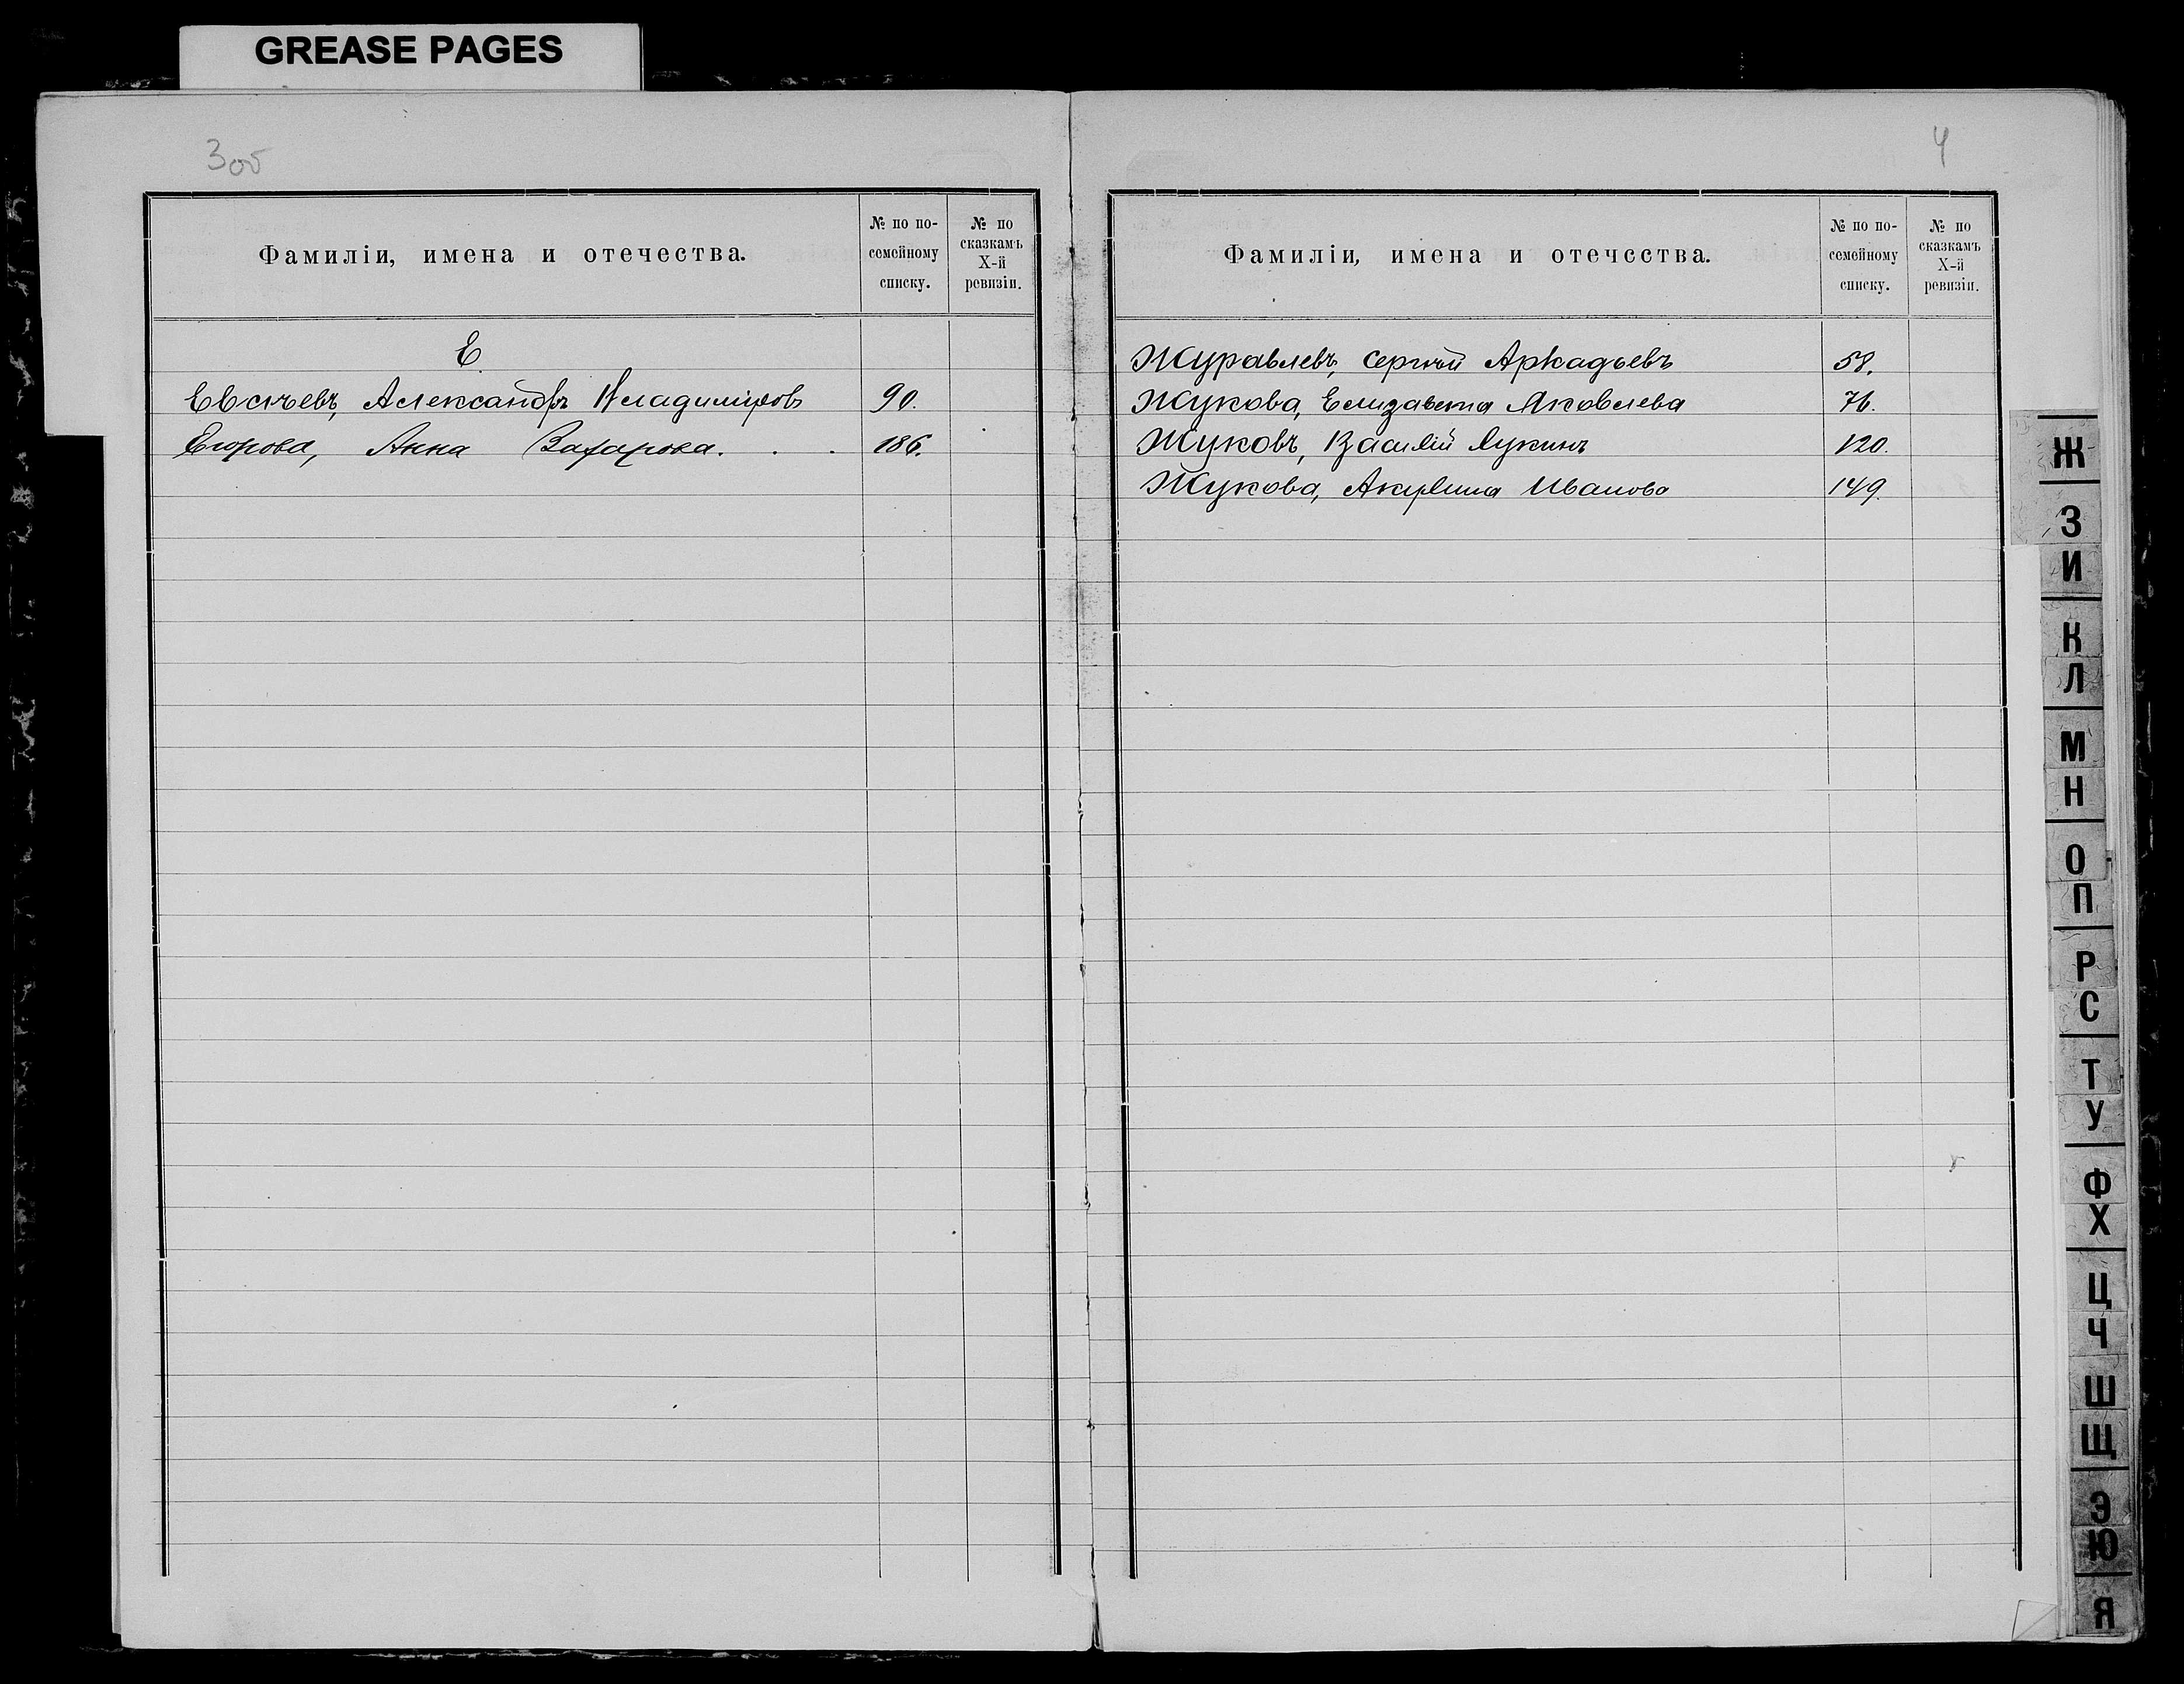 GREASE PAGES
3об
Фамиліи, имена и отечества.
№ по по-
семейному
списку.
№ по
сказкамъ
X-й
ревизіи.
Е.
Евсѣевъ, Александръ Владиміровъ 90.
Егорова, Анна Захарова. . . 186.
4
Фамиліи, имена и отечества.
№ по по-
семейному
списку.
№ по
сказкамъ
X-й
ревизіи.
Журавлевъ, Сергѣй Аркадьевъ 58.
Жукова, Елизавета Яковлева 76.
Жуковъ, Василій Лукинъ 120.
Жукова, Акулина Иванова 149.
Ж
З
И
К
Л
М
Н
О
П
Р
С
Т
У
Ф
Х
Ц
Ч
Ш
Щ
Э
Ю
Я